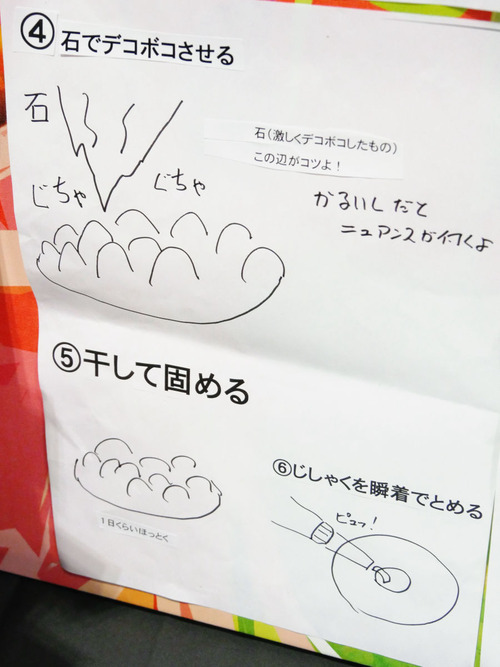 ④ 石でデコボコさせる
石
石(激しくデコボコしたもの)
この辺がコツよ！
じちゃ
じちゃ
かるいしだと
ニュアンスが付くよ
⑤干して固める
1日くらいほっとく
⑥じしゃくを瞬着でとめる
ピュッ！